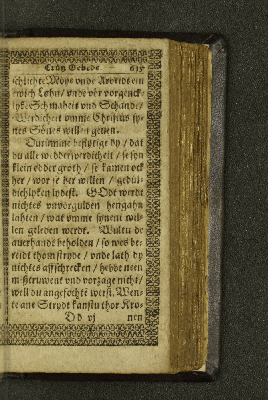 Crütz Gebede. 617
ichlichte Möye vnde Arbeidt ein
ewich Lohn / vnde vör vorgenck-
lyke Schmaheit vnd Schande /
Werdicheit vmme Christus sy-
nes Sönes willen geuen.
Darumme beflytige dy / dat
du alle wedderwerdicheit / se syn
klein edder groth / se kamen ock
her / wor se her willen / gedül-
dichlyken lydest. GOdt werdt
nichtes vnvorgulden hengahn
lahten / wat vmme synent wil-
len geleden werdt. Wultu de
auerhandt beholden / so wes be-
reidt thom stryde / vnde lath dy
nichtes affschrecken / hebbe neen
mißtruwent vnd vorzage nicht /
wen du angefochtē werst. Wen-
te ane Strydt kanstu thor Kro-
Dd vj nen